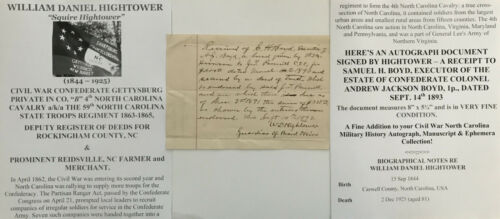 WILLIAM DANIEL HIGHTOWER
"Squire Hightower"
(1844 – 1925)
CIVIL WAR CONFEDERATE GETTYSBURG
PRIVATE IN CO. "B" 4th NORTH CAROLINA
CAVALRY a/k/a THE 59th NORTH CAROLINA
STATE TROOPS REGIMENT 1863-1865,
DEPUTY REGISTER OF DEEDS FOR
ROCKINGHAM COUNTY, NC
&
PROMINENT REIDSVILLE, NC FARMER and
MERCHANT.
In April 1862, the Civil War was entering its second year and
North Carolina was rallying to supply more troops for the
Confederacy. The Partisan Ranger Act, passed by the Confederate
Congress on April 21, prompted local leaders to recruit
companies of irregular soldiers for service in the Confederate
Army. Seven such companies were banded together into a
Received of S. H. Boyd, Executor of
A. J. Boyd, a bond given by
dated
secured by
endorsed by said
and on which there is a
of
as shown by the
endorsed. This Sept. 14 1893
W D Hightower
Guardian of
regiment to form the 4th North Carolina Cavalry: a true cross-
section of North Carolina, it contained soldiers from the largest
urban areas and smallest rural areas from fifteen counties. The 4th
North Carolina saw action in North Carolina, Virginia, Maryland
and Pennsylvania, and was a part of General Lee's Army of
Northern Virginia.
HERE'S AN AUTOGRAPH DOCUMENT
SIGNED BY HIGHTOWER – A RECEIPT TO
SAMUEL H. BOYD, EXECUTOR OF THE
ESTATE OF CONFEDERATE COLONEL
ANDREW JACKSON BOYD, 1p., DATED
SEPT. 14th 1893
The document measures 8" x 5¼" and is in VERY FINE
CONDITION.
A Fine Addition to your Civil War North Carolina
Military History Autograph, Manuscript & Ephemera
Collection!
<<>><<>><<>><<>><<>><<>>
BIOGRAPHICAL NOTES RE
WILLIAM DANIEL HIGHTOWER
Birth
15 Sep 1844
Caswell County, North Carolina, USA
Death
2 Dec 1925 (aged 81)